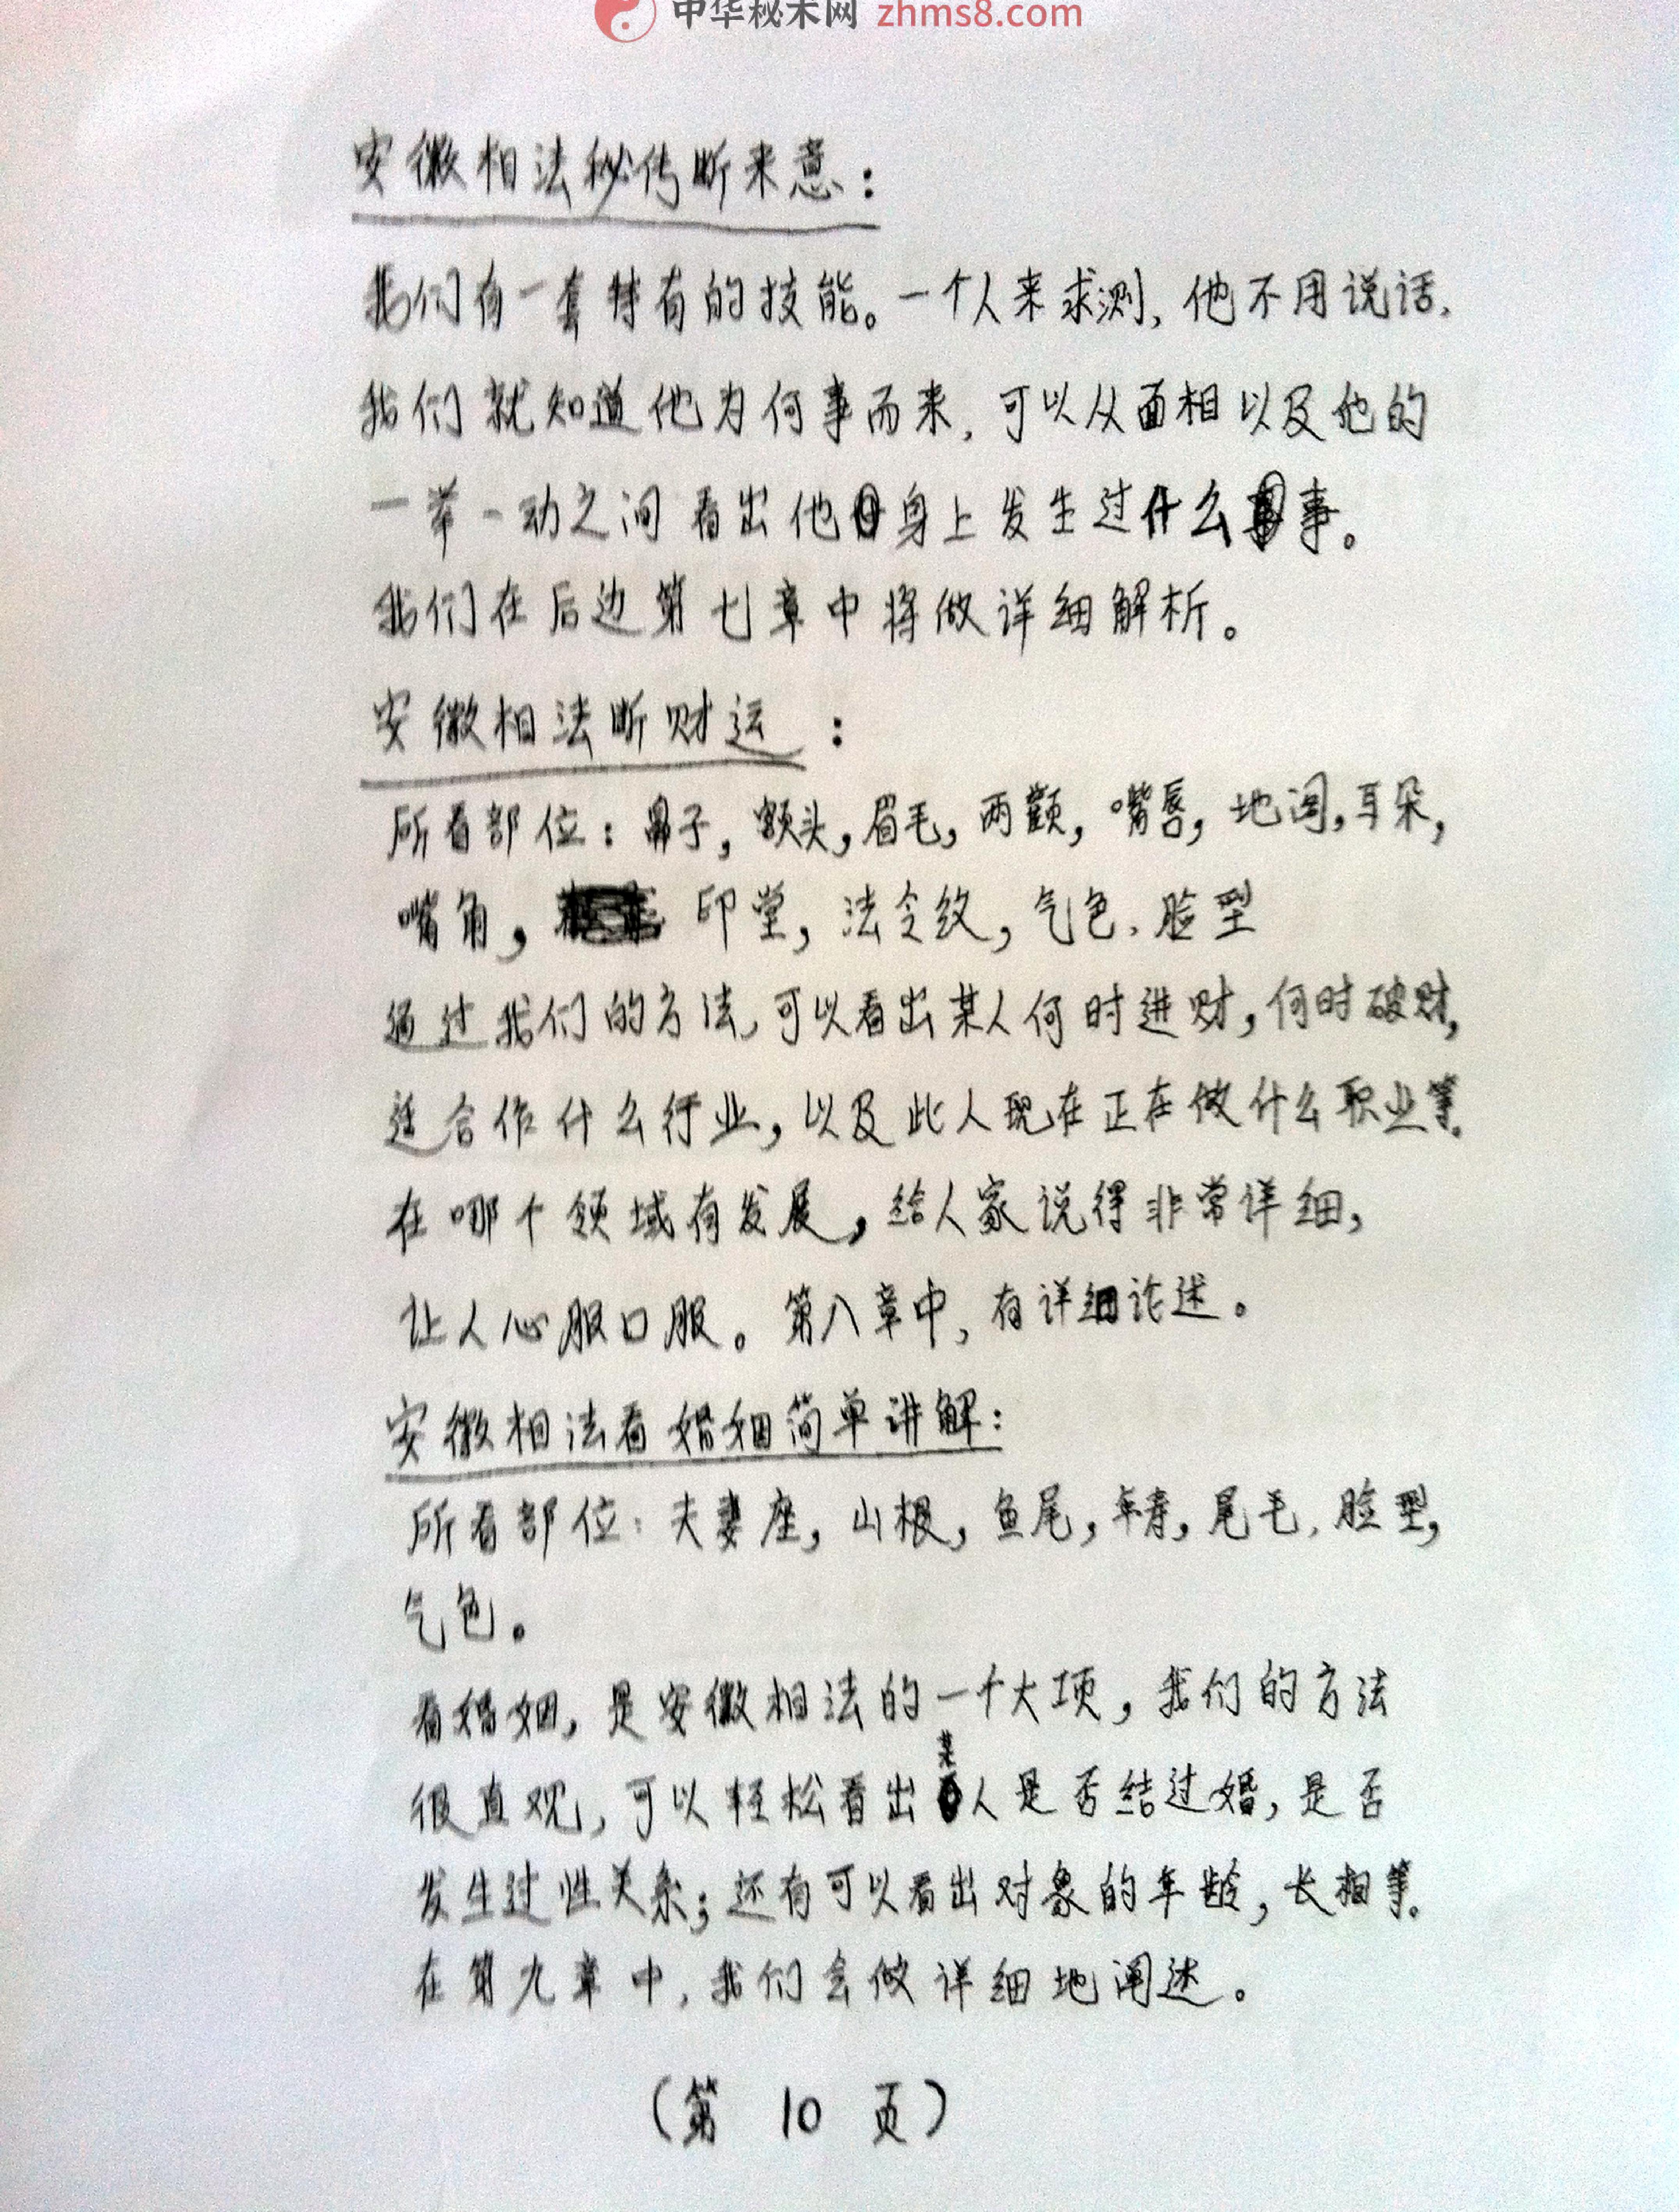 中华秘术网 zhms8.com
安徽相法秘传断来意：
我们有一套特有的技能。一个人来求测，他不用说话，
我们就知道他为何事而来，可以从面相以及他的
一举一动之间看出他身上发生过什么事。
我们在后边第七章中将做详细解析。
安徽相法断财运：
所看部位：鼻子，额头，眉毛，两颧，嘴唇，地阁，耳朵，
嘴角，印堂，法令纹，气色，脸型
通过我们的方法，可以看出某人何时进财，何时破财，
适合作什么行业，以及此人现在正在做什么职业等。
在哪个领域有发展，给人家说得非常详细，
让人心服口服。第八章中，有详细论述。
安徽相法看婚姻简单讲解：
所看部位：夫妻座，山根，鱼尾，年寿，尾毛，脸型，
气色。
看婚姻，是安徽相法的一个大项，我们的方法
很直观，可以轻松看出某人是否结过婚，是否
发生过性关系；还有可以看出对象的年龄，长相等。
在第九章中，我们会做详细地阐述。
（第 10 页）